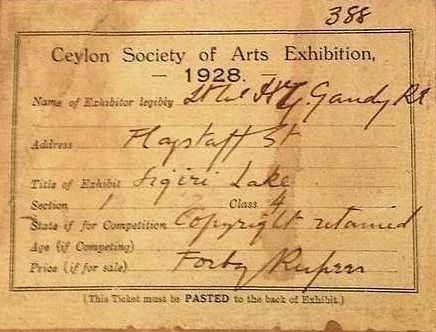 388
Ceylon Society of Arts Exhibition,
— 1928. —
Name of Exhibitor legibly Lt Col H G Gandy RE
Address Flagstaff St
Title of Exhibit Sigiri Lake
Section Class 4
State if for Competition Copyright retained
Age (if Competing)
Price (if for sale) Forty Rupees
(This Ticket must be PASTED to the back of Exhibit.)